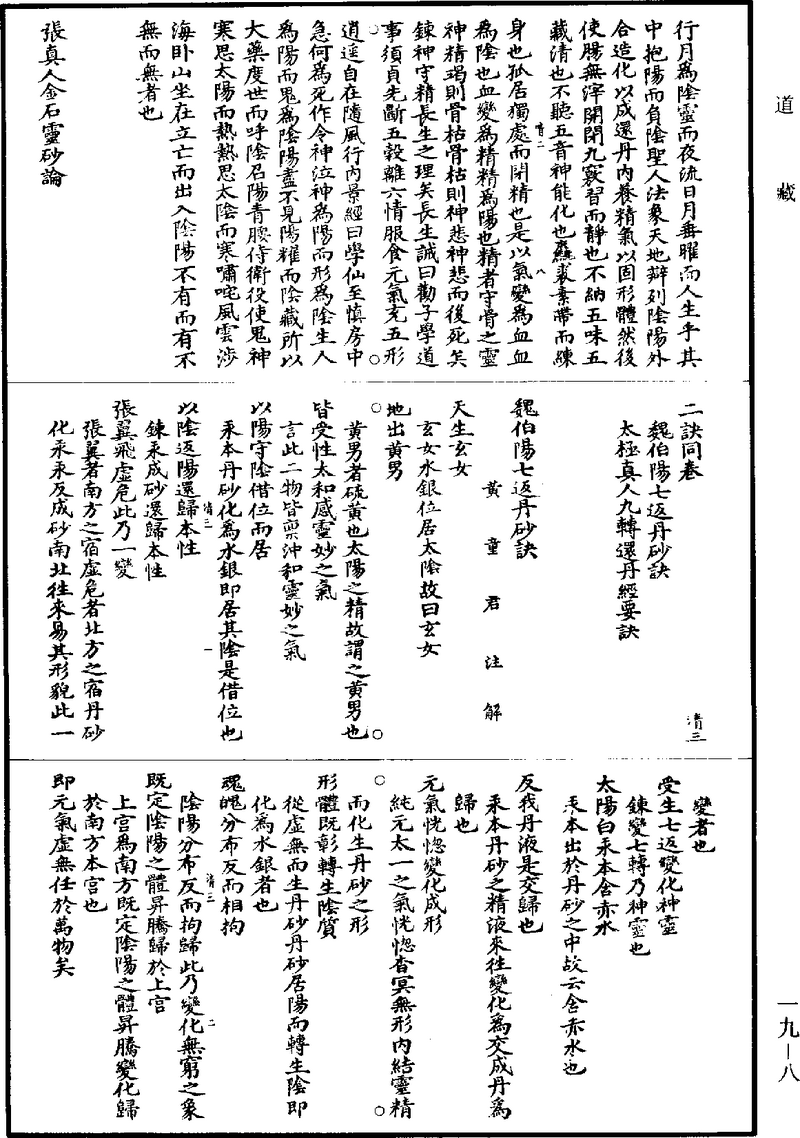 道藏
行月為陰靈而夜流日月垂曜而人生乎其
中抱陽而負陰聖人法象天地辯列陰陽外
合造化以成還丹內養精氣以固形體然後
使腸無滓開閉九竅習而靜也不納五味五
藏清也不聽五音神能化也麤裘素帶而練
身也孤居獨處而閉精也是以氣變為血血
為陰也血變為精精為陽也精者守骨之靈
神精竭則骨枯骨枯則神悲神悲而後死矣
鍊神守精長生之理矣長生誠曰勸子學道
事須貞先斷五穀離六情服食元氣充五形
逍遥自在隨風行內景經曰學仙至慎房中
急何為死作令神泣神為陽而形為陰生人
為陽而鬼為陰陰陽盡不見陽耀而陰藏所以
大藥度世而呼陰召陽青腰侍衛役使鬼神
寒思太陽而熱熱思太陰而寒嘯咤風雲涉
海卧山坐在立亡而出入陰陽不有而有不
無而無者也
張真人金石靈砂論
二訣同卷
清三
魏伯陽七返丹砂訣
太極真人九轉還丹經要訣
魏伯陽七返丹砂訣
黃童君注解
天生玄女
玄女水銀位居太陰故曰玄女
地出黃男
黃男者硫黃也太陽之精故謂之黃男也
皆受性太和感靈妙之氣
言此二物皆稟沖和靈妙之氣
以陽守陰借位而居
汞本丹砂化為水銀即居其陰是借位也
以陰返陽還歸本性
鍊汞成砂還歸本性
張翼飛虛危此乃一變
張翼者南方之宿虛危者北方之宿丹砂
化汞汞反成砂南北往來易其形貌此一
變者也
受生七返變化神靈
鍊變七轉乃神靈也
太陽白汞本含赤水
汞本出於丹砂之中故云含赤水也
反我丹液是交歸也
汞本丹砂之精液來往變化為交成丹為
歸也
元氣恍惚變化成形
純元太一之氣恍惚杳冥無形內結靈精
而化生丹砂之形
形體既彰轉生陰質
從虛無而生丹砂丹砂居陽而轉生陰即
化為水銀者也
魂魄分布反而相拘
陰陽分布反而拘歸此乃變化無窮之象
既定陰陽之體昇騰歸於上宮
上宮為南方既定陰陽之體昇騰變化歸
於南方本宮也
即元氣虛無任於萬物矣
一九－八